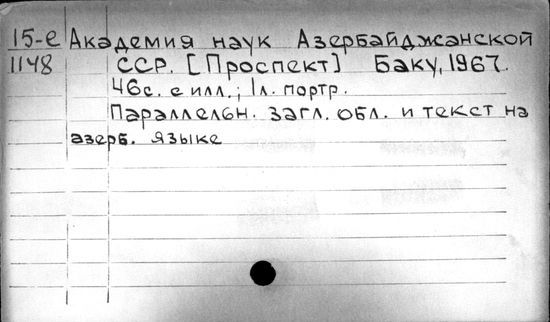 15-е Академия наук Азербайджанской
1148 ССР. [Проспект] Баку, 1967.
46с. с илл.; 1л. портр.
Параллельн. загл. обл. и текст на
азерб. языке